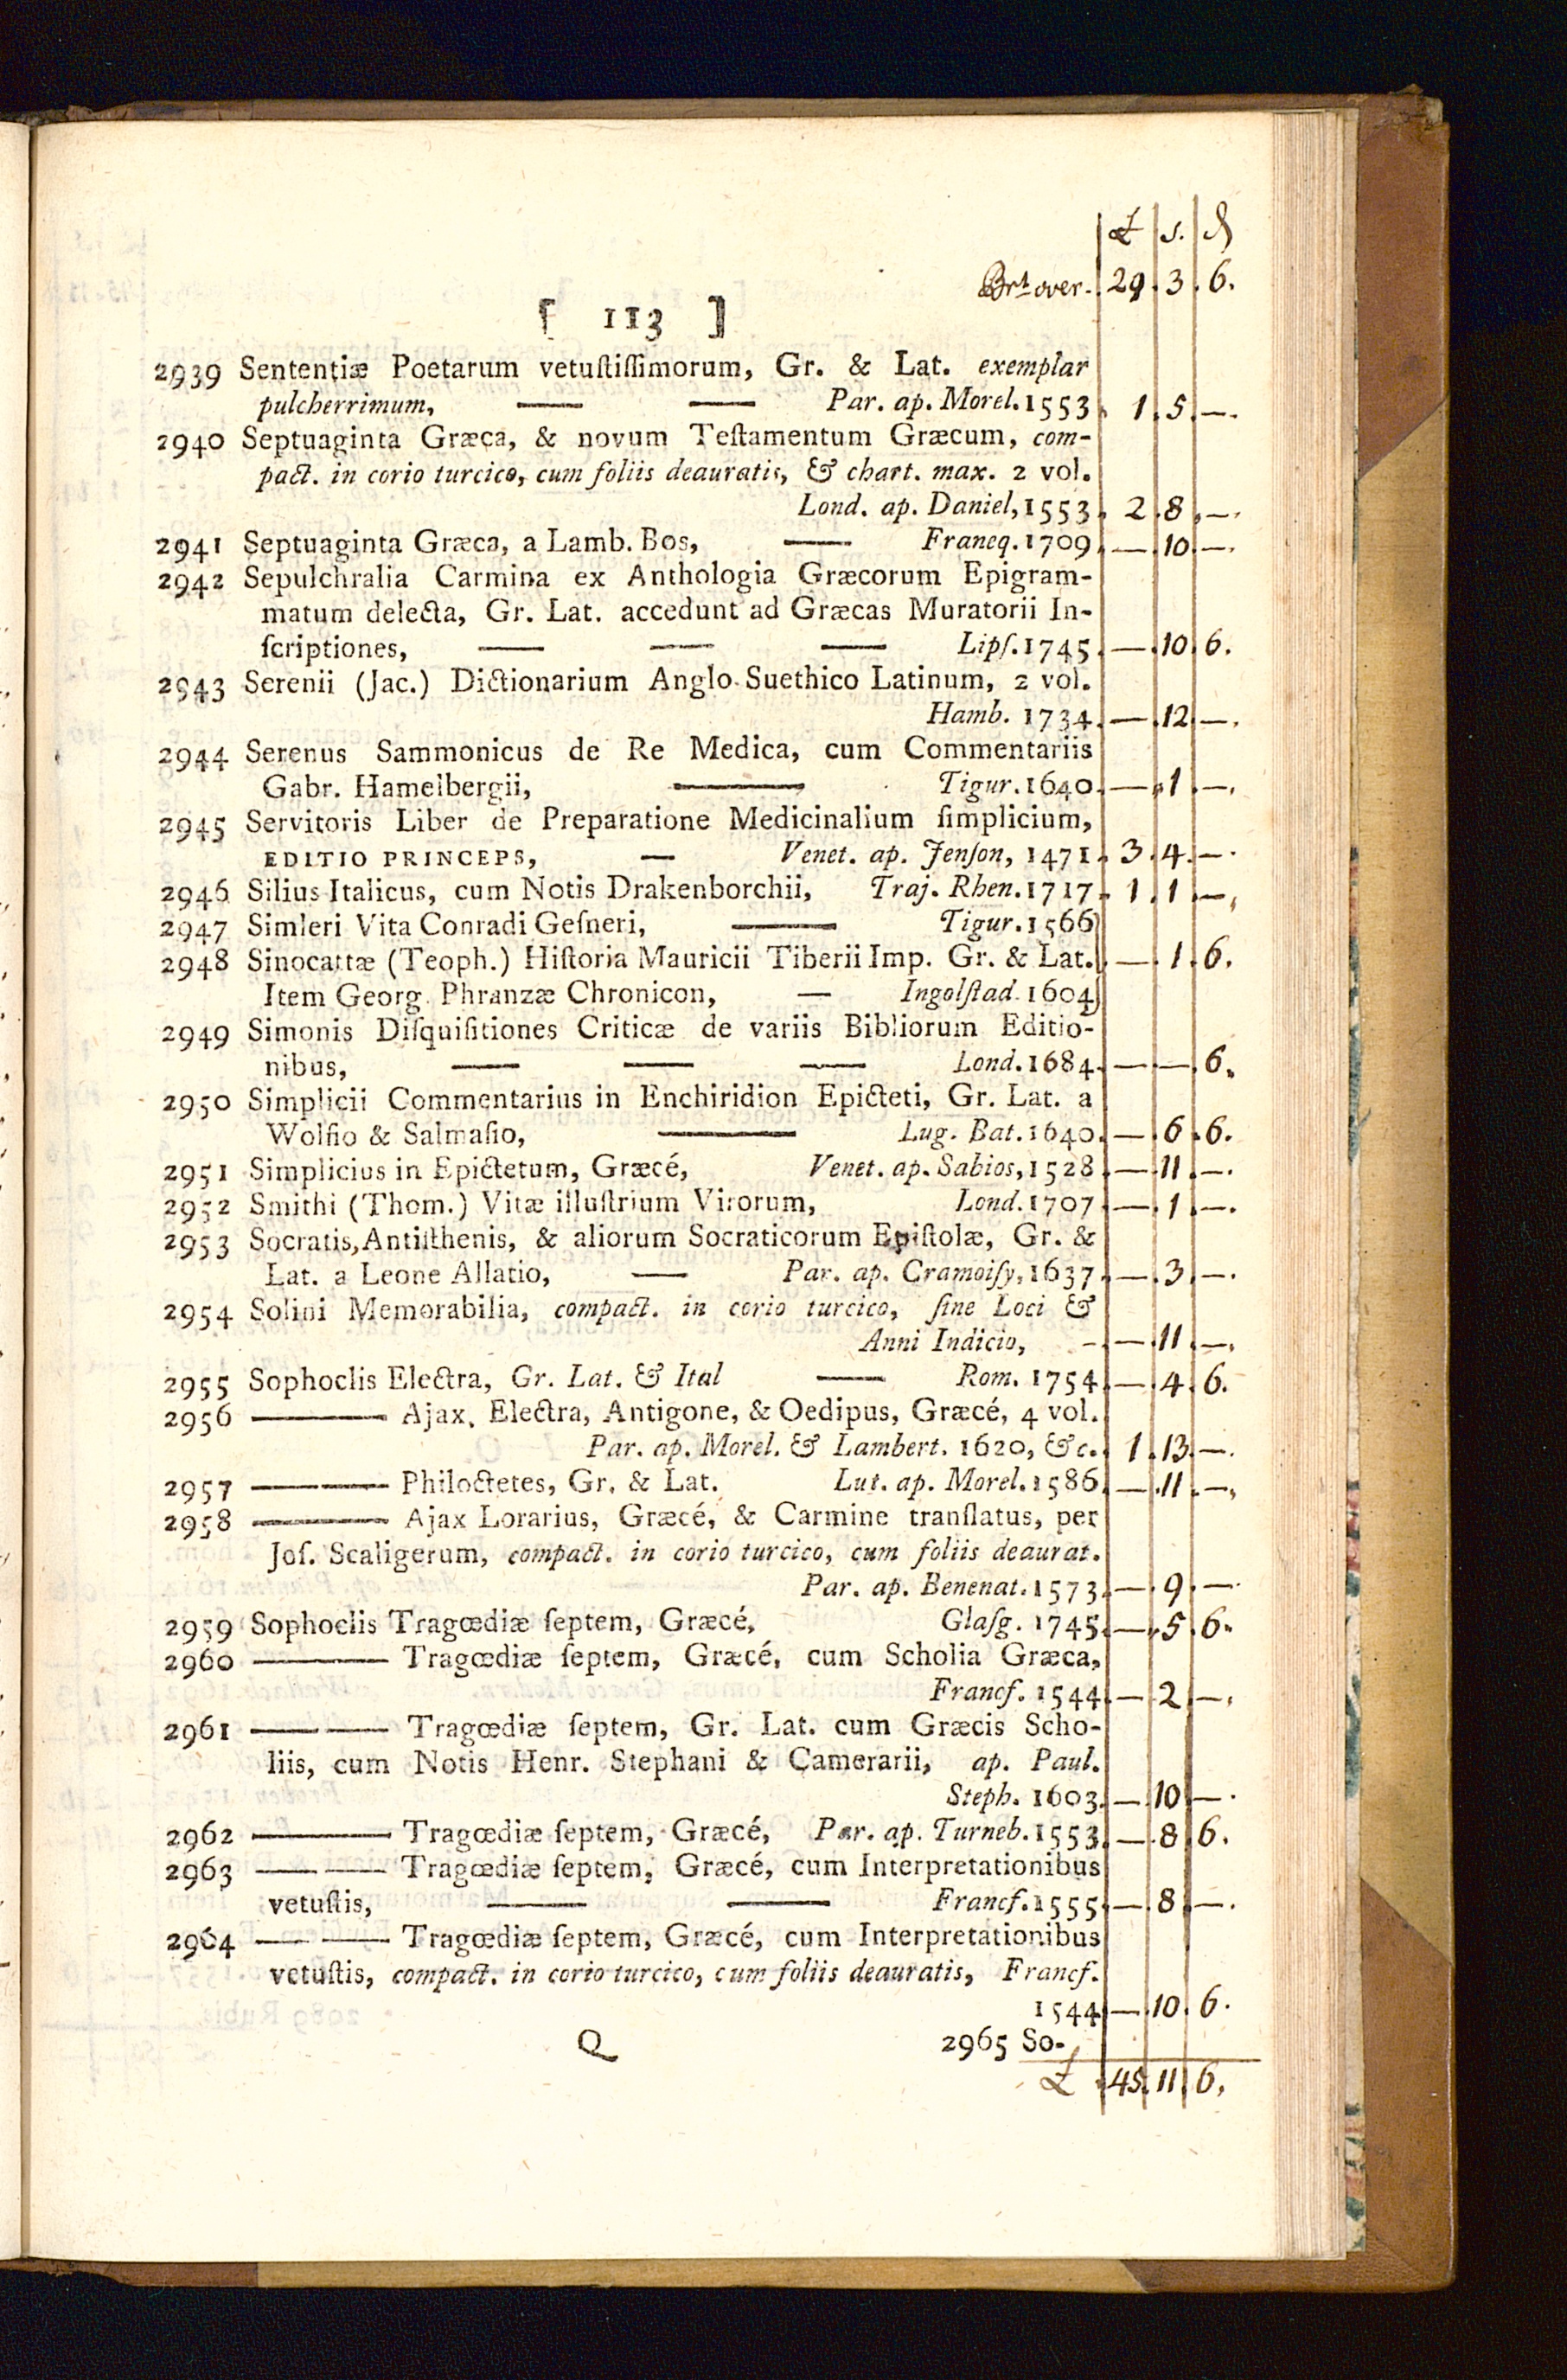 £ s. d
Brt over. 29. 3. 6.
[ 113 ]
2939 Sententiæ Poetarum vetuſtiſſimorum, Gr. & Lat. exemplar
pulcherrimum, — — Par. ap. Morel. 1553. 1. 5. —.
2940 Septuaginta Græca, & novum Teſtamentum Græcum, com-
pact. in corio turcico, cum foliis deauratis, & chart. max. 2 vol.
Lond. ap. Daniel, 1553. 2. 8. —.
2941 Septuaginta Græca, a Lamb. Bos, — Franeq. 1709. — . 10. —.
2942 Sepulchralia Carmina ex Anthologia Græcorum Epigram-
matum delecta, Gr. Lat. accedunt ad Græcas Muratorii In-
ſcriptiones, — — — Lipſ. 1745. — . 10. 6.
2943 Serenii (Jac.) Dictionarium Anglo-Suethico Latinum, 2 vol.
Hamb. 1734. — . 12. —.
2944 Serenus Sammonicus de Re Medica, cum Commentariis
Gabr. Hamelbergii, — Tigur. 1640. — . 1. —.
2945 Servitoris Liber de Preparatione Medicinalium ſimplicium,
EDITIO PRINCEPS, — Venet. ap. Jenſon, 1471. 3. 4. —.
2946 Silius Italicus, cum Notis Drakenborchii, Traj. Rhen. 1717. 1. 1. —.
2947 Simleri Vita Conradi Geſneri, — Tigur. 1566
2948 Sinocattæ (Teoph.) Hiſtoria Mauricii Tiberii Imp. Gr. & Lat. — . 1. 6.
Item Georg. Phranzæ Chronicon, — Ingolſtad. 1604
2949 Simonis Diſquiſitiones Criticæ de variis Bibliorum Editio-
nibus, — — — Lond. 1684. — . — . 6.
2950 Simplicii Commentarius in Enchiridion Epicteti, Gr. Lat. a
Wolfio & Salmaſio, — Lug. Bat. 1640. — . 6. 6.
2951 Simplicius in Epictetum, Græcé, Venet. ap. Sabios, 1528. — . 11. —.
2952 Smithi (Thom.) Vitæ illuſtrium Virorum, Lond. 1707. — . 1. —.
2953 Socratis, Antiſthenis, & aliorum Socraticorum Epiſtolæ, Gr. &
Lat. a Leone Allatio, — Par. ap. Cramoiſy, 1637. — . 3. —.
2954 Solini Memorabilia, compact. in corio turcico, ſine Loci &
Anni Indicio, - — . 11. —.
2955 Sophoclis Electra, Gr. Lat. & Ital — Rom. 1754. — . 4. 6.
2956 ——— Ajax, Electra, Antigone, & Oedipus, Græcé, 4 vol.
Par. ap. Morel. & Lambert. 1620, &c. 1. 13. —.
2957 ——— Philoctetes, Gr. & Lat. Lut. ap. Morel. 1586. — . 11. —.
2958 ——— Ajax Lorarius, Græcé, & Carmine tranſlatus, per
Joſ. Scaligerum, compact. in corio turcico, cum foliis deaurat.
Par. ap. Benenat. 1573. — . 9. —.
2959 Sophoclis Tragœdiæ ſeptem, Græcé, Glaſg. 1745. — . 5. 6.
2960 ——— Tragœdiæ ſeptem, Græcé, cum Scholia Græca,
Francf. 1544. — . 2. —.
2961 ——— Tragœdiæ ſeptem, Gr. Lat. cum Græcis Scho-
liis, cum Notis Henr. Stephani & Camerarii, ap. Paul.
Steph. 1603. — . 10. —.
2962 ——— Tragœdiæ ſeptem, Græcé, Par. ap. Turneb. 1553. — . 8. 6.
2963 ——— Tragœdiæ ſeptem, Græcé, cum Interpretationibus
vetuſtis, — — Francf. 1555. — . 8. —.
2964 ——— Tragœdiæ ſeptem, Græcé, cum Interpretationibus
vetuſtis, compact. in corio turcico, cum foliis deauratis, Francf.
1544. — . 10. 6.
Q 2965 So-
£ . 45. 11. 6.